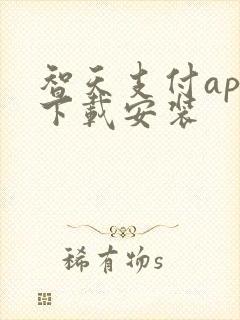 智天支付ap
下载安装
稀有物s